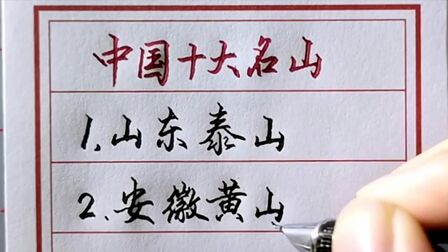 中国十大名山
1.山东泰山
2.安徽黄山